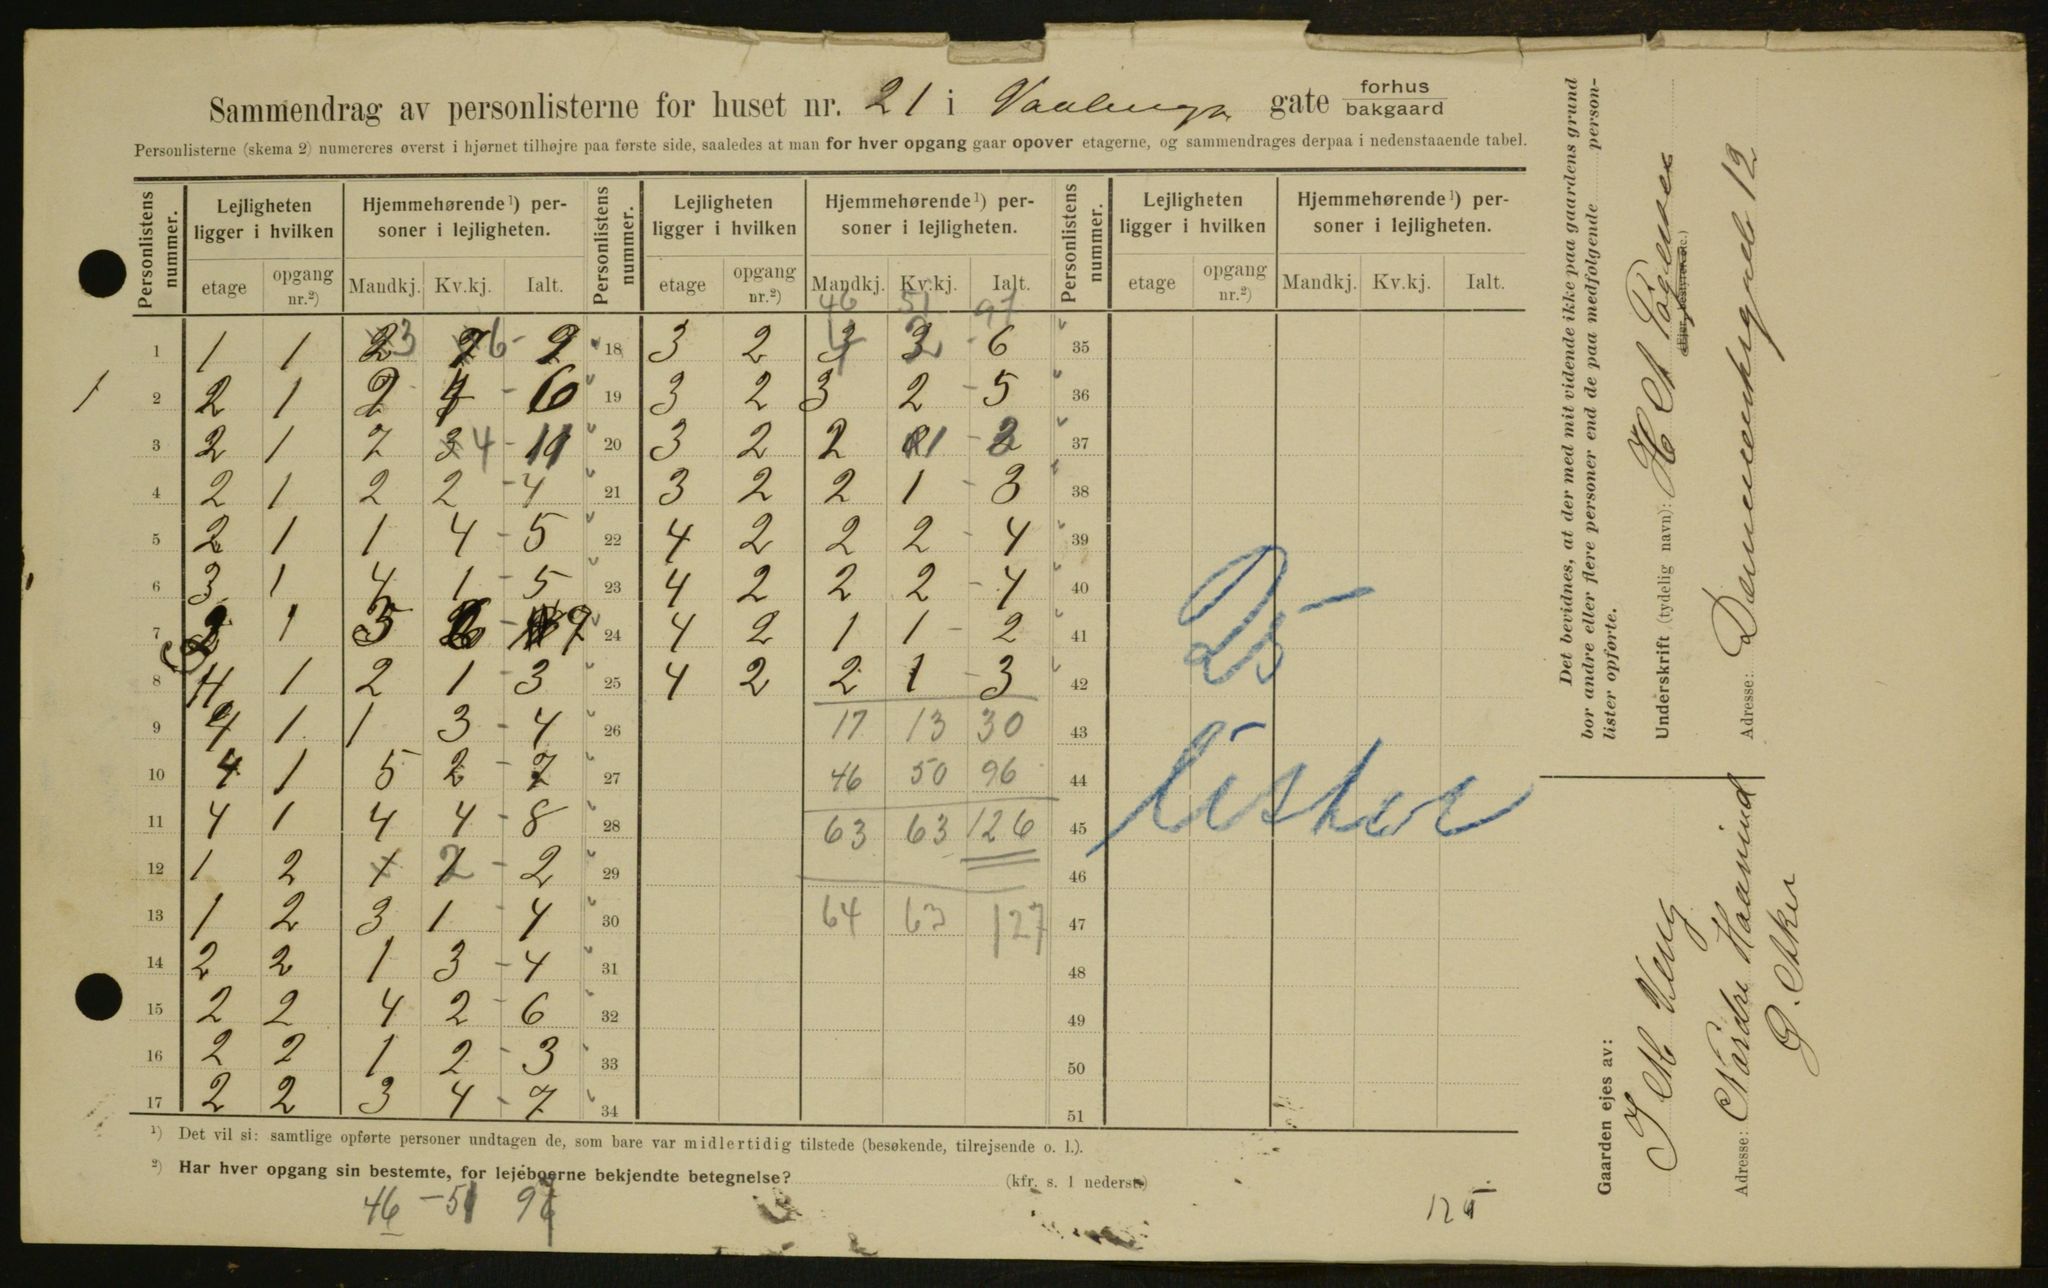 Sammendrag av personlisterne for huset nr. 21 i Vaalenga gate forhus bakgaard
Personlisterne (skema 2) numereres øverst i hjørnet tilhøjre paa første side, saaledes at man for hver opgang gaar opover etagerne, og sammendrages derpaa i nedenstaaende tabel.
Personlistens nummer. Lejligheten ligger i hvilken Hjemmehørende¹) personer i lejligheten. Personlistens nummer. Lejligheten ligger i hvilken Hjemmehørende¹) personer i lejligheten. Personlistens nummer. Lejligheten ligger i hvilken Hjemmehørende¹) personer i lejligheten.
etage opgang nr.²) Mandkj. Kv.kj. Ialt. etage opgang nr.²) Mandkj. Kv.kj. Ialt. etage opgang nr.²) Mandkj. Kv.kj. Ialt.
46 51 97
1 1 1 3 6 - 9 18 3 2 4 2 - 6 35
1 2 2 1 2 4 - 6 19 3 2 3 2 - 5 36
3 2 1 7 4 - 11 20 3 2 2 1 - 3 37
4 2 1 2 2 - 4 21 3 2 2 1 - 3 38
5 2 1 1 4 - 5 22 4 2 2 2 - 4 39
6 3 1 4 1 - 5 23 4 2 2 2 - 4 40
7 3 1 3 6 - 9 24 4 2 1 1 - 2 41
8 4 1 2 1 - 3 25 4 2 2 1 - 3 42
9 4 1 1 3 - 4 26 17 13 30 43
10 4 1 5 2 - 7 27 46 50 96 44
11 4 1 4 4 - 8 28 63 63 126 45
12 1 2 2 - 2 29 46
13 1 2 3 1 - 4 30 64 63 127 47
14 2 2 1 3 - 4 31 48
15 2 2 4 2 - 6 32 49
16 2 2 1 2 - 3 33 50
17 2 2 3 4 - 7 34 51
25
lister
¹) Det vil si: samtlige opførte personer undtagen de, som bare var midlertidig tilstede (besøkende, tilrejsende o. l.).
²) Har hver opgang sin bestemte, for lejeboerne bekjendte betegnelse? (kfr. s. 1 nederst.)
46 - 51 97
125
Det bevidnes, at der med mit vidende ikke paa gaardens grund
bor andre eller flere personer end de paa medfølgende personlister opførte.
Underskrift (tydelig navn): H M
(Ejer, bestyrer etc.)
Adresse: 12
Gaarden ejes av:
Adresse: Nordre
Ø. Aker